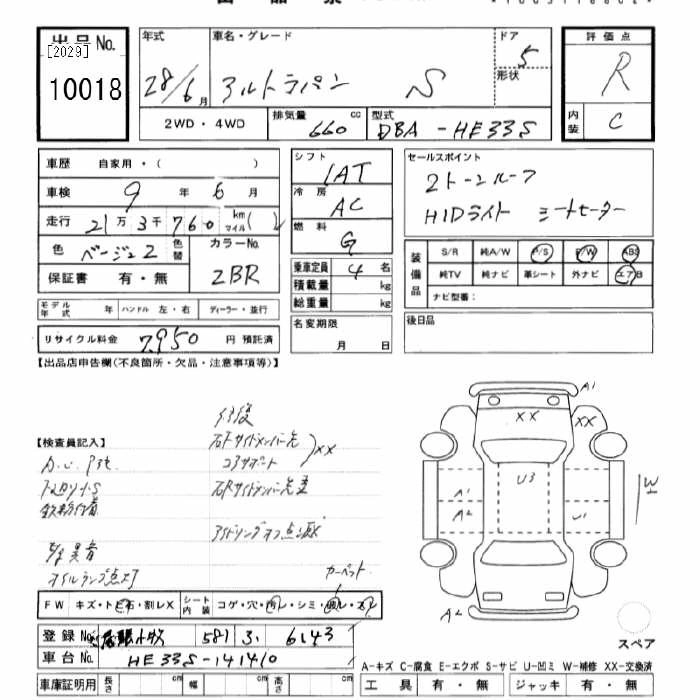 出品票
出品No.
[2029]
10018
年式
28/6月
車名・グレード
アルトラパン S
ドア
5
形状
評価点
R
内装
C
2WD・4WD
排気量
660 cc
型式
DBA-HE33S
車歴 自家用・( )
車検 9 年 6 月
走行 21万3千760 km マイル( )
色 ベージュ2 色替
カラーNo.
ZBR
保証書 有・無
モデル年式 年 ハンドル 左・右 ディーラー・並行
リサイクル料金 7,950 円 預託済
シフト
IAT
冷房
AC
燃料
G
乗車定員 4 名
積載量 kg
総重量 kg
名変期限
月 日
セールスポイント
2トーンルーフ
HIDライト シートヒーター
装備品
S/R 純A/W P/S P/W ABS
純TV 純ナビ 革シート 外ナビ エアB
ナビ型番:
後日品
【出品店申告欄(不良箇所・欠品・注意事項等)】
【検査員記入】
修復
右Fサイドメンバー先
コアサポート
XX
アイドリングオフ点滅
オイルランプ点灯
カーペット
A1
XX
XX
U3
A1
A2
U1
W
A2
スペア
FW キズ・トビ石・割レX
シート内装 コゲ・穴・汚レ・シミ・破レ・スレ
登録No. 尾張小牧 581 す 6143
車台No. HE33S-141410
車庫証明用 長さ cm 幅 cm 高さ cm
A-キズ C-腐食 E-エクボ S-サビ U-凹ミ W-補修 XX-交換済
工具 有・無 ジャッキ 有・無